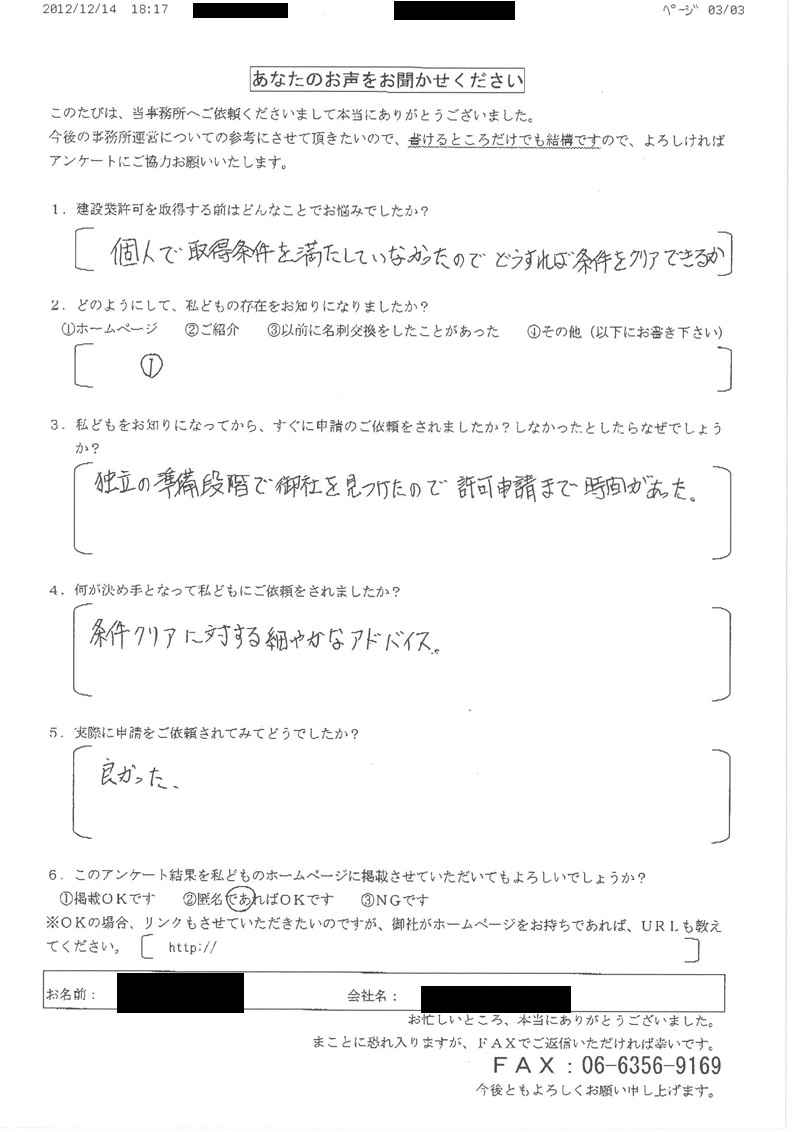 2012/12/14 18:17
ﾍﾟｰｼﾞ 03/03
あなたのお声をお聞かせください
このたびは、当事務所へご依頼くださいまして本当にありがとうございました。
今後の事務所運営についての参考にさせて頂きたいので、書けるところだけでも結構ですので、よろしければ
アンケートにご協力お願いいたします。
１．建設業許可を取得する前はどんなことでお悩みでしたか？
個人で取得条件を満たしていなかったので どうすれば条件をクリアできるか
２．どのようにして、私どもの存在をお知りになりましたか？
①ホームページ ②ご紹介 ③以前に名刺交換をしたことがあった ④その他（以下にお書き下さい）
①
３．私どもをお知りになってから、すぐに申請のご依頼をされましたか？しなかったとしたらなぜでしょう
か？
独立の準備段階で御社を見つけたので 許可申請まで時間があった。
４．何が決め手となって私どもにご依頼をされましたか？
条件クリアに対する細やかなアドバイス。
５．実際に申請をご依頼されてみてどうでしたか？
良かった、
６．このアンケート結果を私どものホームページに掲載させていただいてもよろしいでしょうか？
①掲載ＯＫです ②匿名であればＯＫです ③ＮＧです
※ＯＫの場合、リンクもさせていただきたいのですが、御社がホームページをお持ちであれば、ＵＲＬも教え
てください。 http://
お名前： 会社名：
お忙しいところ、本当にありがとうございました。
まことに恐れ入りますが、ＦＡＸでご返信いただければ幸いです。
ＦＡＸ：06-6356-9169
今後ともよろしくお願い申し上げます。